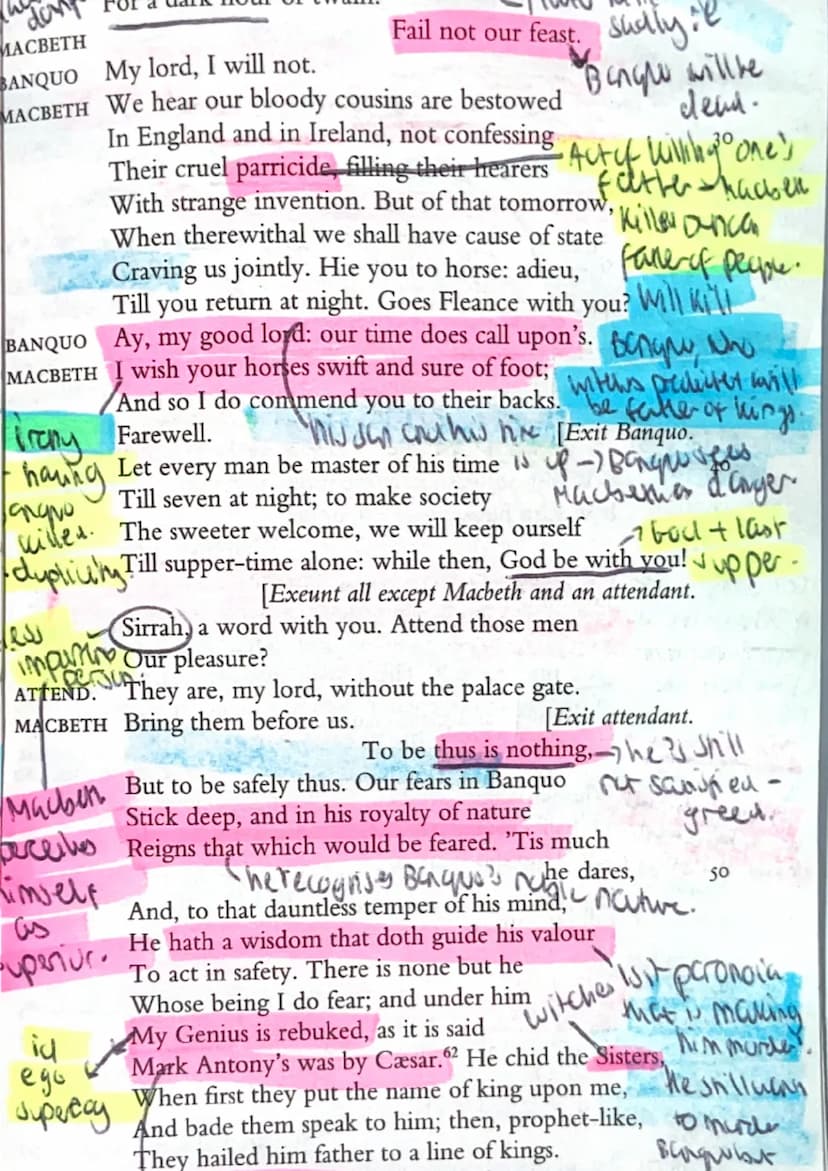 For a dark hour or twain.
MACBETH Fail not our feast. sadly :e
BANQUO My lord, I will not. Banquo will be
MACBETH We hear our bloody cousins are bestowed dead.
In England and in Ireland, not confessing 30
Their cruel parricide, filling their hearers Act of killing one's
With strange invention. But of that tomorrow, father → macbeth
When therewithal we shall have cause of state killed Duncan
Craving us jointly. Hie you to horse: adieu, father of people.
Till you return at night. Goes Fleance with you? will kill
BANQUO Ay, my good lord: our time does call upon's. Banquo, who
MACBETH I wish your horses swift and sure of foot; witches predicted will
And so I do commend you to their backs. be father of kings.
irony Farewell. his [Exit Banquo.
- having Let every man be master of his time is up → Banquo
Till seven at night; to make society Macbeth danger.
killed. The sweeter welcome, we will keep ourself → God + last
duplicity Till supper-time alone: while then, God be with you! supper.
[Exeunt all except Macbeth and an attendant.
less Sirrah, a word with you. Attend those men
important person. Our pleasure?
ATTEND. They are, my lord, without the palace gate.
MACBETH Bring them before us. [Exit attendant.
To be thus is nothing, → he is still
Macbeth But to be safely thus. Our fears in Banquo not satisfied -
Stick deep, and in his royalty of nature greed.
perceives Reigns that which would be feared. 'Tis much
himself he recognises Banquo's noble nature. he dares, 50
as And, to that dauntless temper of his mind,
superior. He hath a wisdom that doth guide his valour
To act in safety. There is none but he
Whose being I do fear; and under him witches' paranoia
My Genius is rebuked, as it is said that is making
id Mark Antony's was by Cæsar.62 He chid the Sisters, him murder.
ego When first they put the name of king upon me, He still wants
superego And bade them speak to him; then, prophet-like, to murder
They hailed him father to a line of kings. Banquo but